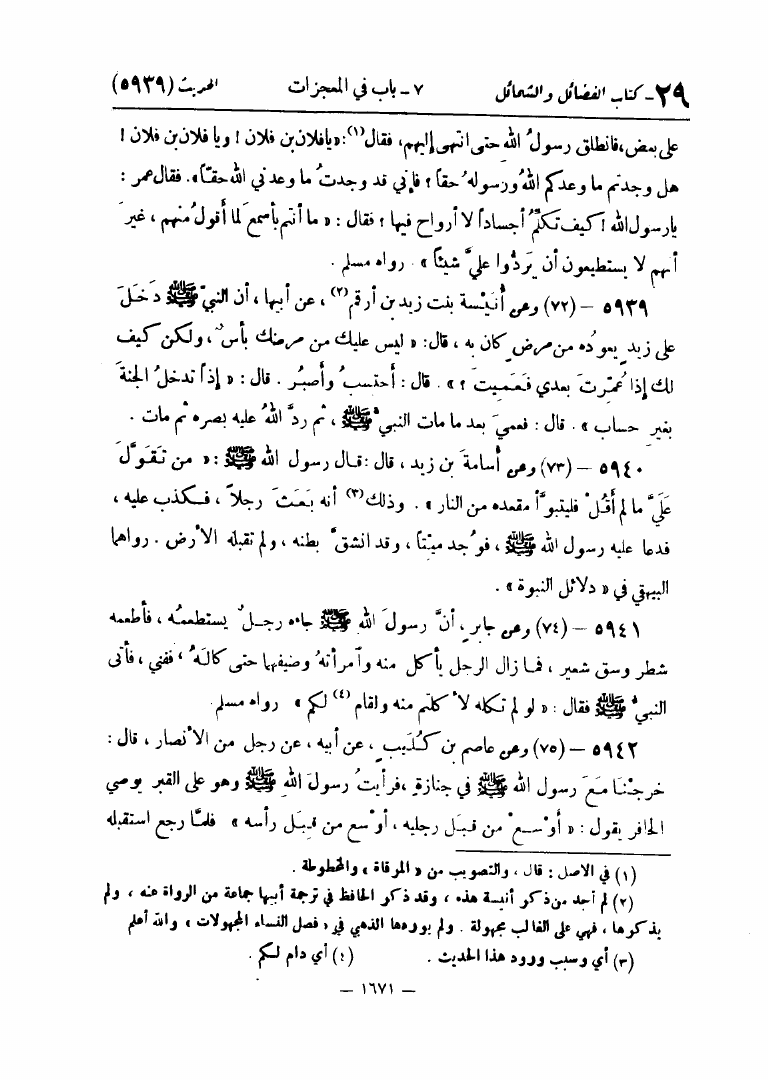 ٢٩ - كتاب الفضائل والشمائل ٧ - باب في المعجزات الحديث (٥٩٣٩)
على بعض، فانطلق رسولُ الله حتى انتهى إليهم، فقال(١): «يا فلان بن فلان ! ويا فلان بن فلان !
هل وجدتم ما وعدكم اللهُ ورسولهُ حقاً ؟ فإني قد وجدتُ ما وعدني الله حقـّاً». فقال عمر :
يا رسول الله ! كيف تكلِّمُ أجساداً لا أرواح فيها ؟ فقال : « ما أنتم بأسمعَ لما أقولُ منهم ، غيرَ
أنهم لا يستطيعون أن يَردُّوا عليَّ شيئاً » . رواه مسلم .
٥٩٣٩ - (٧٢) وعن أُنَيْسة بنت زيد بن أرقم(٢) ، عن أبيها ، أن النبيَّ ﷺ دَخَلَ
على زيدٍ يعودُه من مرضٍ كان به ، قال: « ليس عليك من مرضك بأسٌ ، ولكن كيف
لك إذا عُمِّرتَ بعدي فَعَمِيتَ ؟ » . قال : أحتسبُ وأصبُر . قال : « إذاً تدخلُ الجنةَ
بغيرِ حساب » . قال : فعميَ بعد ما مات النبيُّ ﷺ ، ثم ردَّ اللهُ عليه بصره ثم مات .
٥٩٤٠ - (٧٣) وعن أسامةَ بن زيد ، قال : قـال رسول الله ﷺ : « من تَقَوَّلَ
عَلَيَّ ما لم أَقُلْ فليتبوَّأ مقعده من النار » . وذلك(٣) أنه بَعَثَ رجلاً ، فـكذب عليه ،
فدعا عليه رسول الله ﷺ ، فوُجد ميتاً ، وقد انشقَّ بطنه ، ولم تقبله الأرض . رواهما
البيهقي في « دلائل النبوة » .
٥٩٤١ - (٧٤) وعن جابرٍ ، أنَّ رسولَ الله ﷺ جاءه رجـلٌ يستطعمُه ، فأطعمه
شطر وسق شعير ، فمـا زال الرجل يأكل منه وامرأتهُ وضيفهما حتى كالهُ ، ففني ، فأتى
النبيَّ ﷺ فقال : « لو لم تكله لأكلتم منه ولقام(٤) لكم » رواه مسلم
٥٩٤٢ - (٧٥) وعن عاصم بن كُلَيبٍ ، عن أبيه ، عن رجل من الأنصار ، قال :
خرجْنا مَعَ رسول الله ﷺ في جنازةٍ ، فرأيتُ رسولَ اللهِ ﷺ وهو على القبر يوصي
الحافر يقول : « أَوْسـعْ من قبَل رجليه ، أوْسع من قبَل رأسه » فلمَّا رجع استقبله
(١) في الأصل : قال ، والتصويب من « المرقاة » والمخطوطة .
(٢) لم أجد من ذكر أنيسة هذه ، وقد ذكر الحافظ في ترجمة أبيها جماعة من الرواة عنه ، ولم
يذكروها ، فهي على الغالب مجهولة . ولم يوردها الذهبي في « فصل النساء المجهولات » والله أعلم
(٣) أي وسبب ورود هذا الحديث . (٤) أي دام لـكم .
– ١٦٧١ –